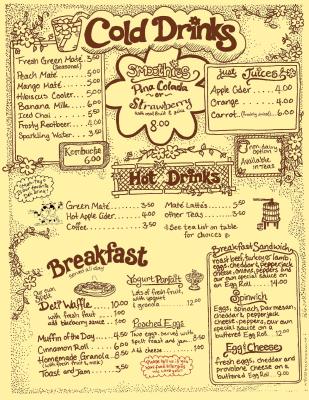 Cold Drinks
Fresh Green Maté 5.00
(Seasonal)
Peach Maté 5.00
Mango Maté
Hibiscus Cooler
Banana Milk
Iced Chai
Frosty Rootbeer 4.00
Sparkling Water
Kombucha
6.00
Smoothies
Pina Colada
or
Strawberry
8.00
Just Juices
Apple Cider 4.00
Orange 4.00
Carrot
Non dairy
Option
Available
in Teas
Hot Drinks
Green Maté 3.50
Hot Apple Cider 4.00
Coffee
Maté Latté's
other Teas
See tea list on table
for choices
Breakfast
served all day
Deli Waffle 10.00
with fresh fruit
add blueberry sauce
Muffin of the Day 4.50
Cinnamon Roll
Homemade Granola
Toast and Jam
Yogurt Parfait
Lots of fresh fruit,
with yogurt
& granola
12.00
Poached Eggs
Two eggs, served with
spelt toast and jam
Add cheese
Breakfast Sandwich
roast beef, turkey or lamb,
eggs, cheddar & pepperjack
cheese, onions, peppers and
our own special sauce on a
Egg Roll 14.00
Spinwich
Eggs, spinach, Parmesan,
cheddar & pepperjack
cheese, peppers, our own
special sauce on a
buttered Egg Roll 12.00
Egg & Cheese
fresh eggs, cheddar and
provolone cheese on a
buttered Egg Roll 9.00